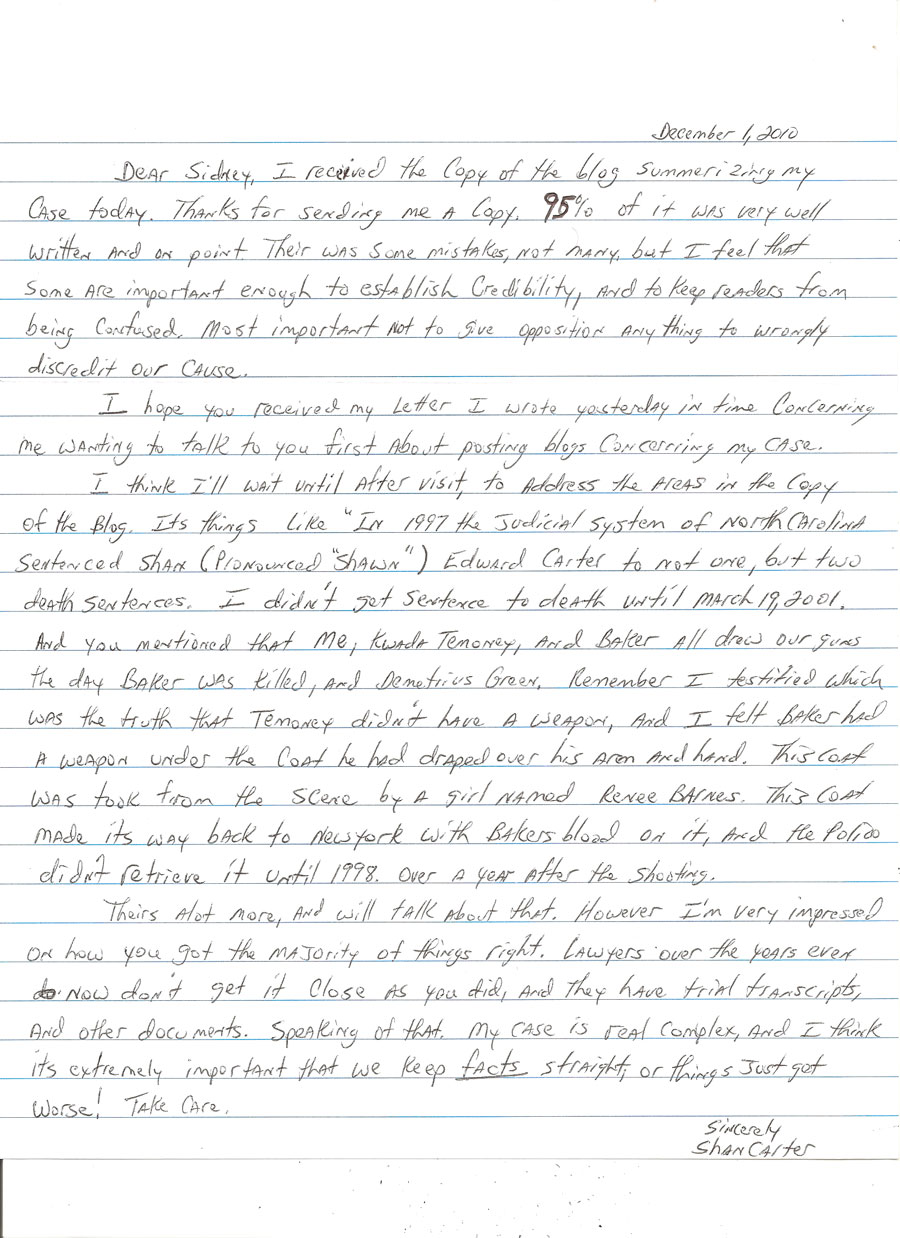 December 1, 2010
Dear Sidney, I received the Copy of the blog Summerizing my
Case today. Thanks for sending me A Copy. 95% of it was very well
written and on point. Their was some mistakes, not many, but I feel that
Some are important enough to establish Credibility, and to keep readers from
being Confused. Most important not to give opposition anything to wrongly
discredit our cause.
I hope you received my Letter I wrote yesterday in time Concerning
me wanting to talk to you first about posting blogs Concerning my case.
I think I'll wait until after visit, to address the areas in the Copy
of the Blog. Its things like "In 1997 the Judicial System of North Carolina
Sentenced Shan (Pronounced "Shawn") Edward Carter to not one, but two
death sentences. I didn't get Sentence to death until March 19, 2001.
And you mentioned that me, Kwada Temoney, and Baker all drew our guns
the day Baker was killed, and Demetrius Green. Remember I testified which
was the truth that Temoney didn't have a weapon, and I felt Baker had
a weapon under the Coat he had draped over his arm and hand. This coat
was took from the scene by a girl named Renee Barnes. This Coat
made its way back to Newyork with Bakers blood on it, and the Police
didn't retrieve it until 1998. Over a year after the shooting.
Theirs alot more, and will talk about that. However I'm very impressed
on how you got the majority of things right. Lawyers over the years even
now don't get it Close as you did, and they have trial transcripts,
and other documents. Speaking of that. My case is real Complex, and I think
its extremely important that we keep facts straight, or things Just get
worse! Take Care.
Sincerely
Shan Carter